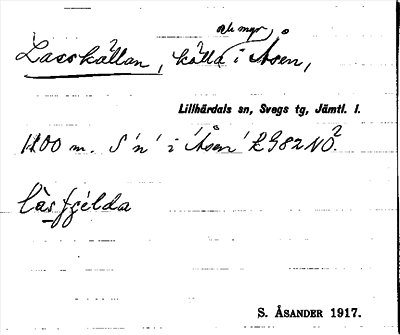 och myr
Lasskällan, källa i Åsen,
Lillhärdals sn, Svegs tg, Jämtl. l.
1200 m. S 'n' i 'Åsen' E 982 NO².
làsfjélda
S. ÅSANDER 1917.